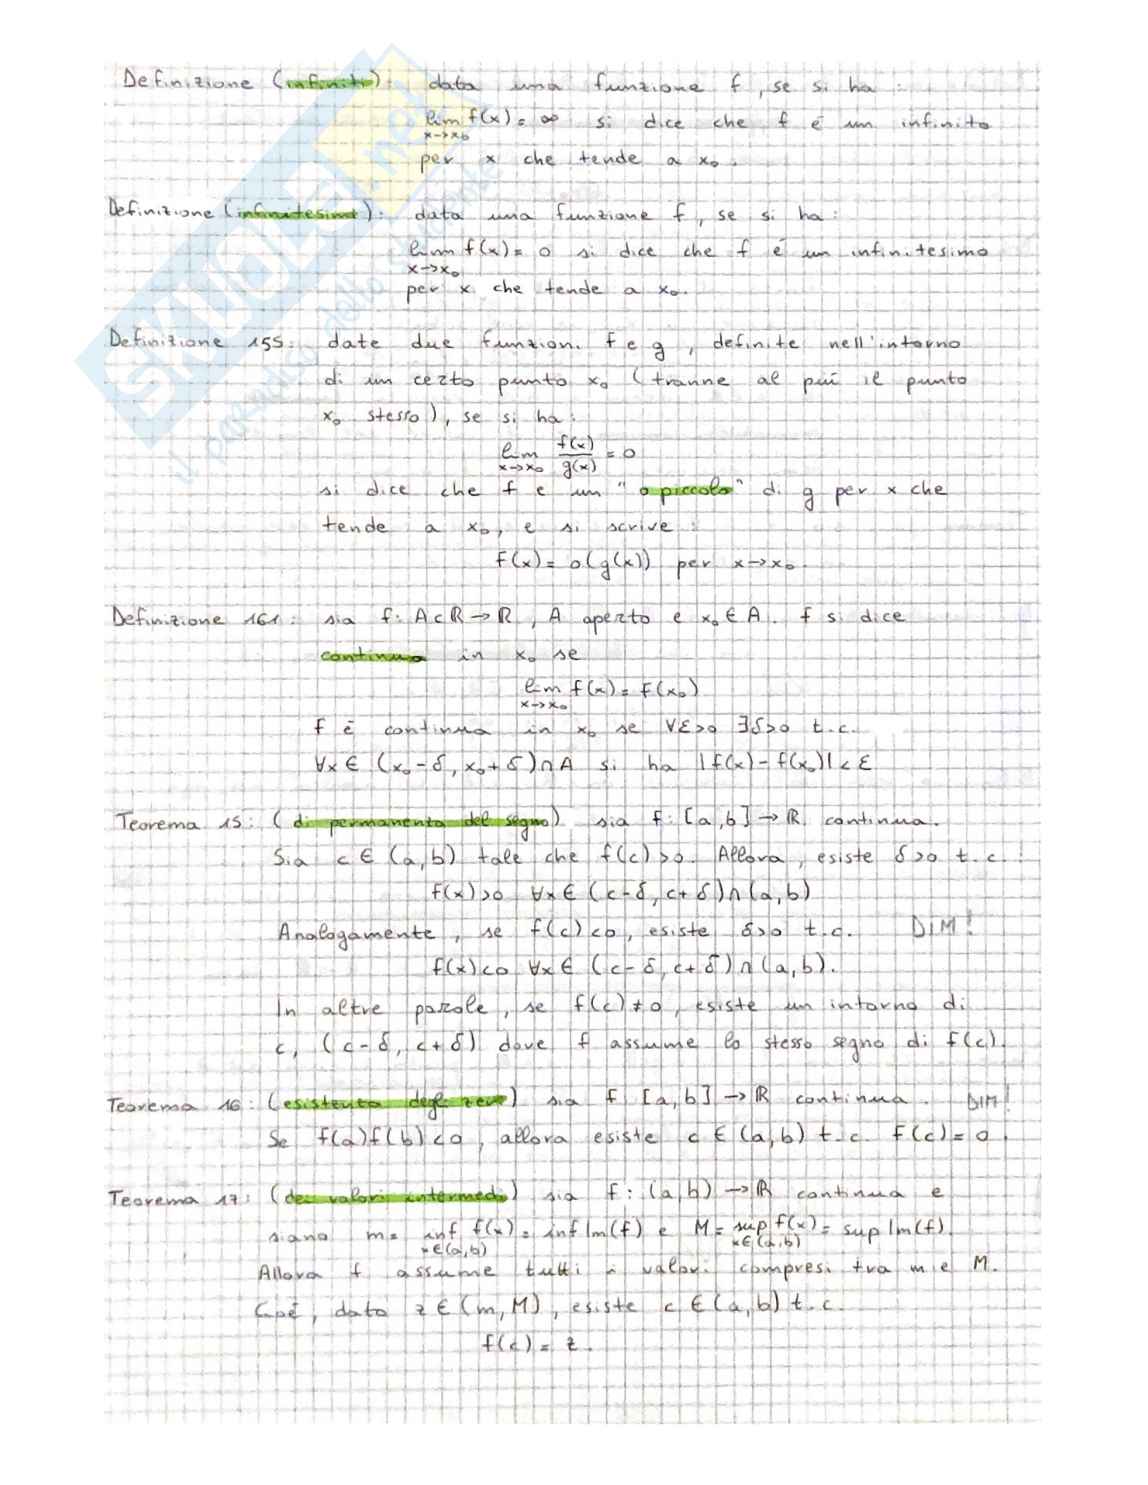 Definizione (infiniti): data una funzione f, se si ha:
lim f(x) = ∞ si dice che f è un infinito
x→x₀
per x che tende a x₀.
Definizione (infinitesimi): data una funzione f, se si ha:
lim f(x) = 0 si dice che f è un infinitesimo
x→x₀
per x che tende a x₀.
Definizione 155: date due funzioni f e g, definite nell'intorno
di un certo punto x₀ (tranne al più il punto
x₀ stesso), se si ha:
lim f(x)/g(x) = 0
x→x₀
si dice che f e un "o piccolo" di g per x che
tende a x₀, e si scrive:
f(x) = o(g(x)) per x→x₀.
Definizione 161: sia f: A⊂ℝ→ℝ, A aperto e x₀∈A. f si dice
continua in x₀ se
lim f(x) = f(x₀)
x→x₀
f è continua in x₀ se ∀ε>0 ∃δ>0 t.c.
∀x∈ (x₀-δ, x₀+δ)∩A si ha |f(x)-f(x₀)|<ε
Teorema 15: (di permanenza del segno) sia f: [a,b]→ℝ continua.
Sia c∈(a,b) tale che f(c)>0. Allora, esiste δ>0 t.c.:
f(x)>0 ∀x∈(c-δ, c+δ)∩(a,b)
Analogamente, se f(c)<0, esiste δ>0 t.c. DIM!
f(x)<0 ∀x∈ (c-δ, c+δ)∩(a,b).
In altre parole, se f(c)≠0, esiste un intorno di
c, (c-δ, c+δ) dove f assume lo stesso segno di f(c).
Teorema 16: (esistenza degli zeri) sia f [a,b]→ℝ continua. DIM!
Se f(a)f(b)<0, allora esiste c∈(a,b) t.c. f(c)=0.
Teorema 17: (dei valori intermedi) sia f: (a,b)→ℝ continua e
siano m= inf f(x) = inf Im(f) e M= sup f(x) = sup Im(f).
x∈(a,b) x∈(a,b)
Allora f assume tutti i valori compresi tra m e M.
Cioè, dato z∈(m,M), esiste c∈(a,b) t.c.
f(c) = z.
SKUOLA.net
il paradiso dello studente